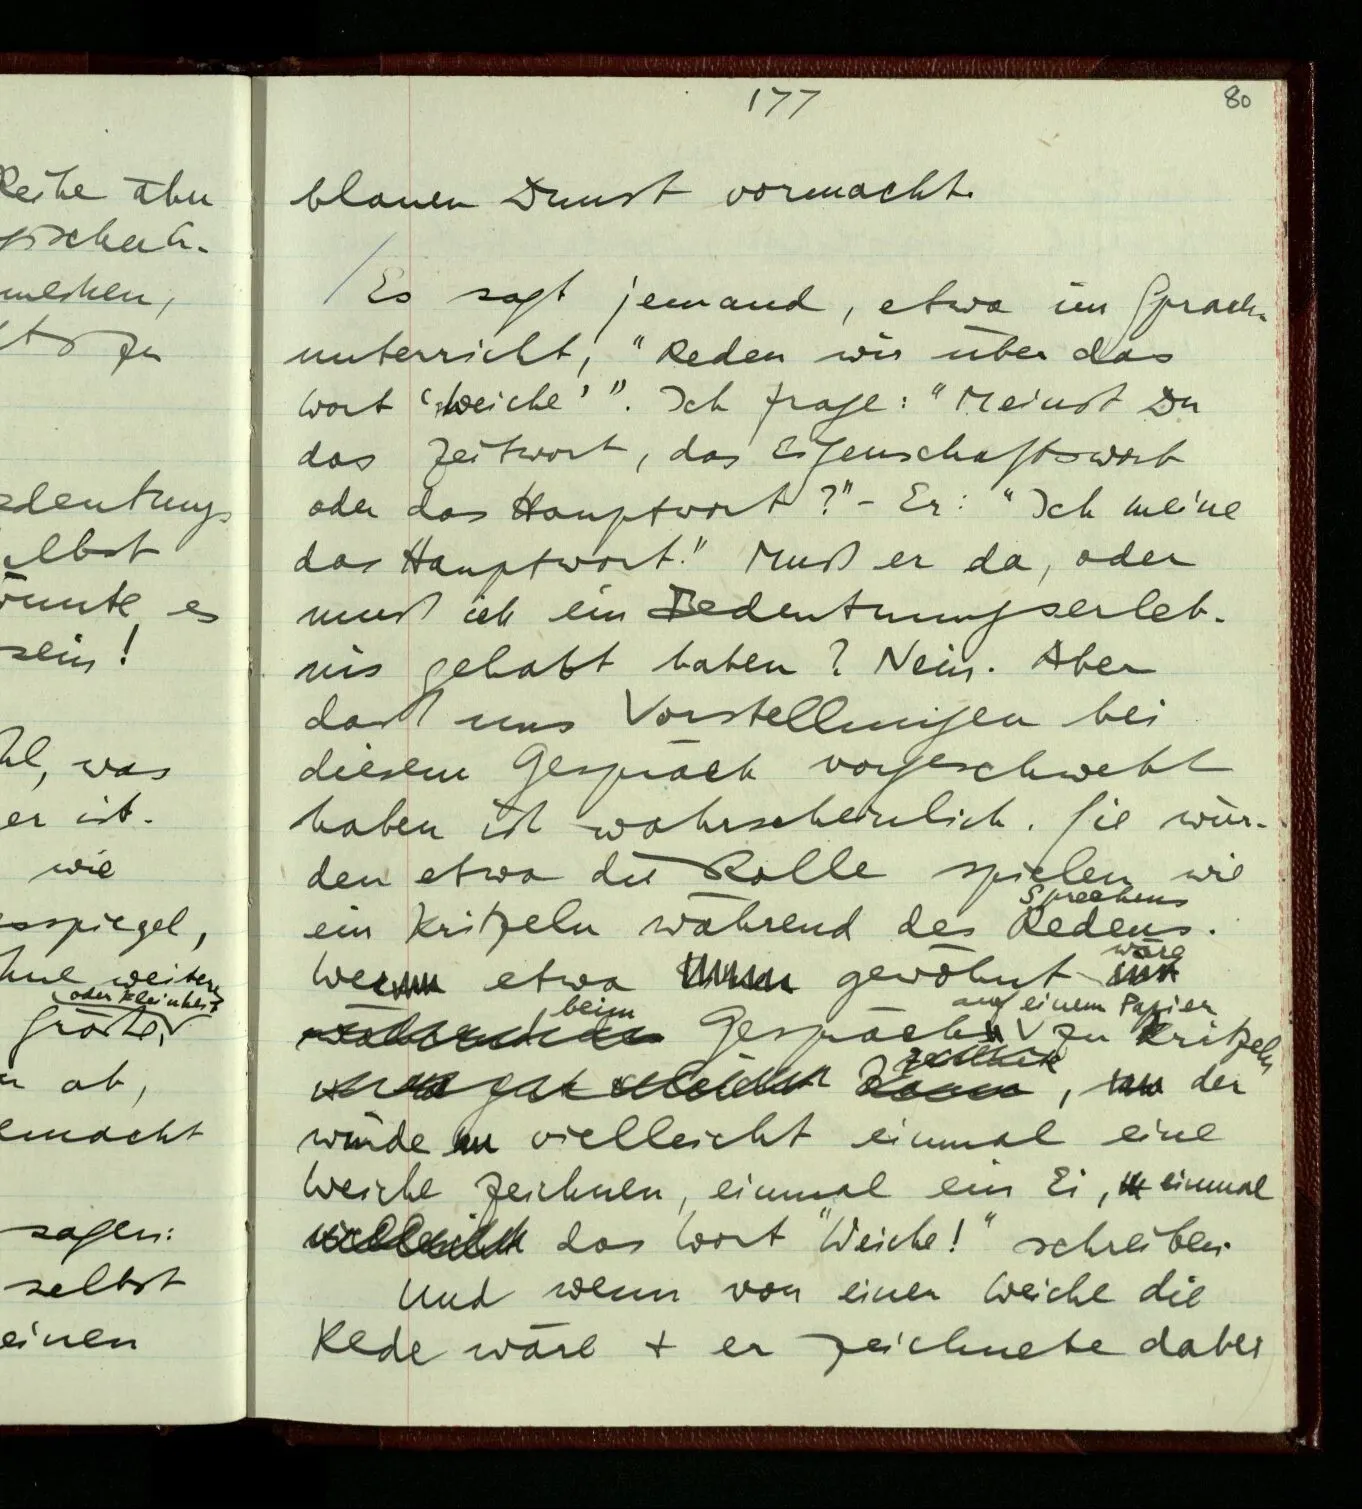 177
80
Reihe
zu
selbst
könnte es
sein!
was
er ist.
wie
ohne weitere
oder Kleinheit
Größe,
ab,
gemacht
sagen:
selbst
einen
blauen Dunst vormacht.
/Es sagt jemand, etwa im Sprach-
unterricht, "Reden wir über das
Wort 'Weiche'". Ich frage: "Meinst Du
das Zeitwort, das Eigenschaftswort
oder das Hauptwort?" – Er: "Ich meine
das Hauptwort." Muß er da, oder
muß ich ein Bedeutungserleb-
nis gehabt haben? Nein. Aber
daß uns Vorstellungen bei
diesem Gespräch vorgeschwebt
haben ist wahrscheinlich. Sie wür-
den etwa die Rolle spielen wie
Sprechens
ein Kritzeln während des Redens.
wäre
Wer etwa gewöhnt ist
beim auf einem Papier
während des Gespräch zu kritzeln
, der
würde vielleicht einmal eine
Weiche zeichnen, einmal ein Ei, einmal
vielleicht das Wort "Weiche!" schreiben.
Und wenn von einer Weiche die
Rede wäre + er zeichnete dabei